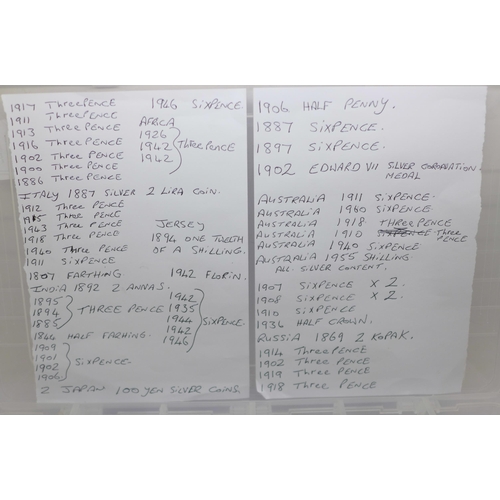 1917 ThreePENCE 1946 SixPENCE
1911 ThreePENCE AFRICA
1913 Three PENCE 1926
1916 Three PENCE 1942 Three PENCE
1902 Three PENCE 1942
1900 Three PENCE
1886 Three PENCE
ITALY 1887 SILVER 2 LIRA COIN.
1912 Three PENCE
1915 Three PENCE JERSEY
1943 Three PENCE 1894 ONE TWELTH
1918 Three PENCE OF A SHILLING.
1940 Three PENCE
1911 SixPENCE
1807 FARTHING 1942 FLORIN.
INDIA 1892 2 ANNAS.
1895 1942
1894 THREE PENCE 1935
1885 1944 SixPENCE
1844 HALF FARHING. 1942
1909 1946
1901 SixPENCE.
1902
1906
2 JAPAN 100 YEN SILVER COINS.
1906 HALF PENNY.
1887 SIXPENCE.
1897 SIXPENCE.
1902 EDWARD VII SILVER CORONATION
MEDAL
AUSTRALIA 1911 SixPENCE.
AUSTRALIA 1960 SixPENCE
AUSTRALIA 1918 THREEPENCE
AUSTRALIA 1910 SixPENCE Three
PENCE
AUSTRALIA 1940 SixPENCE
AUSTRALIA 1955 SHILLING
ALL SILVER CONTENT.
1907 SIXPENCE X 2.
1908 SIXPENCE X 2.
1910 SIXPENCE
1936 HALF CROWN.
RUSSIA 1869 2 KOPAK.
1914 ThreePENCE
1902 Three PENCE
1919 Three PENCE
1918 Three PENCE